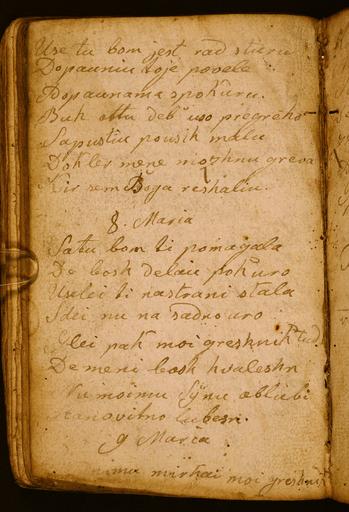 Use tu bom jest rad sturu
Dopauniu toje povele
Dopaunama spokuru.
Buh ottu deb uso pregreho
Sapustiu pousih malu
Dokler mene mozhnu greva
Kir sem Boga reshaliu.
8. Maria
Satu bom ti pomagala
De bosh delau pokuro
Uselei ti nastrani stala
Sdei nu na sadno uro
Glei pak moi greshnik tud
De meni bosh hvaleshn
moimu Synu oblubi
stanovitno lubesn.
9 Maria
mirkai moi greshnik